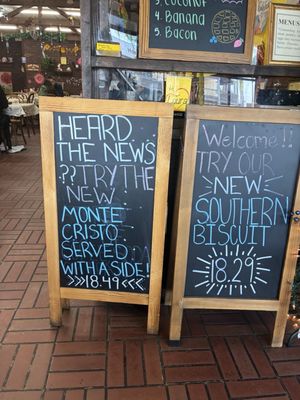 3. COCONUT
4. BANANA
5. BACON
MENUS
HEARD
THE NEWS
?? TRY THE
NEW!
MONTE
CRISTO
SERVED
WITH A SIDE!
>>>18.49<<<
Welcome!!
TRY OUR
NEW
SOUTHERN
BISCUIT
18.29